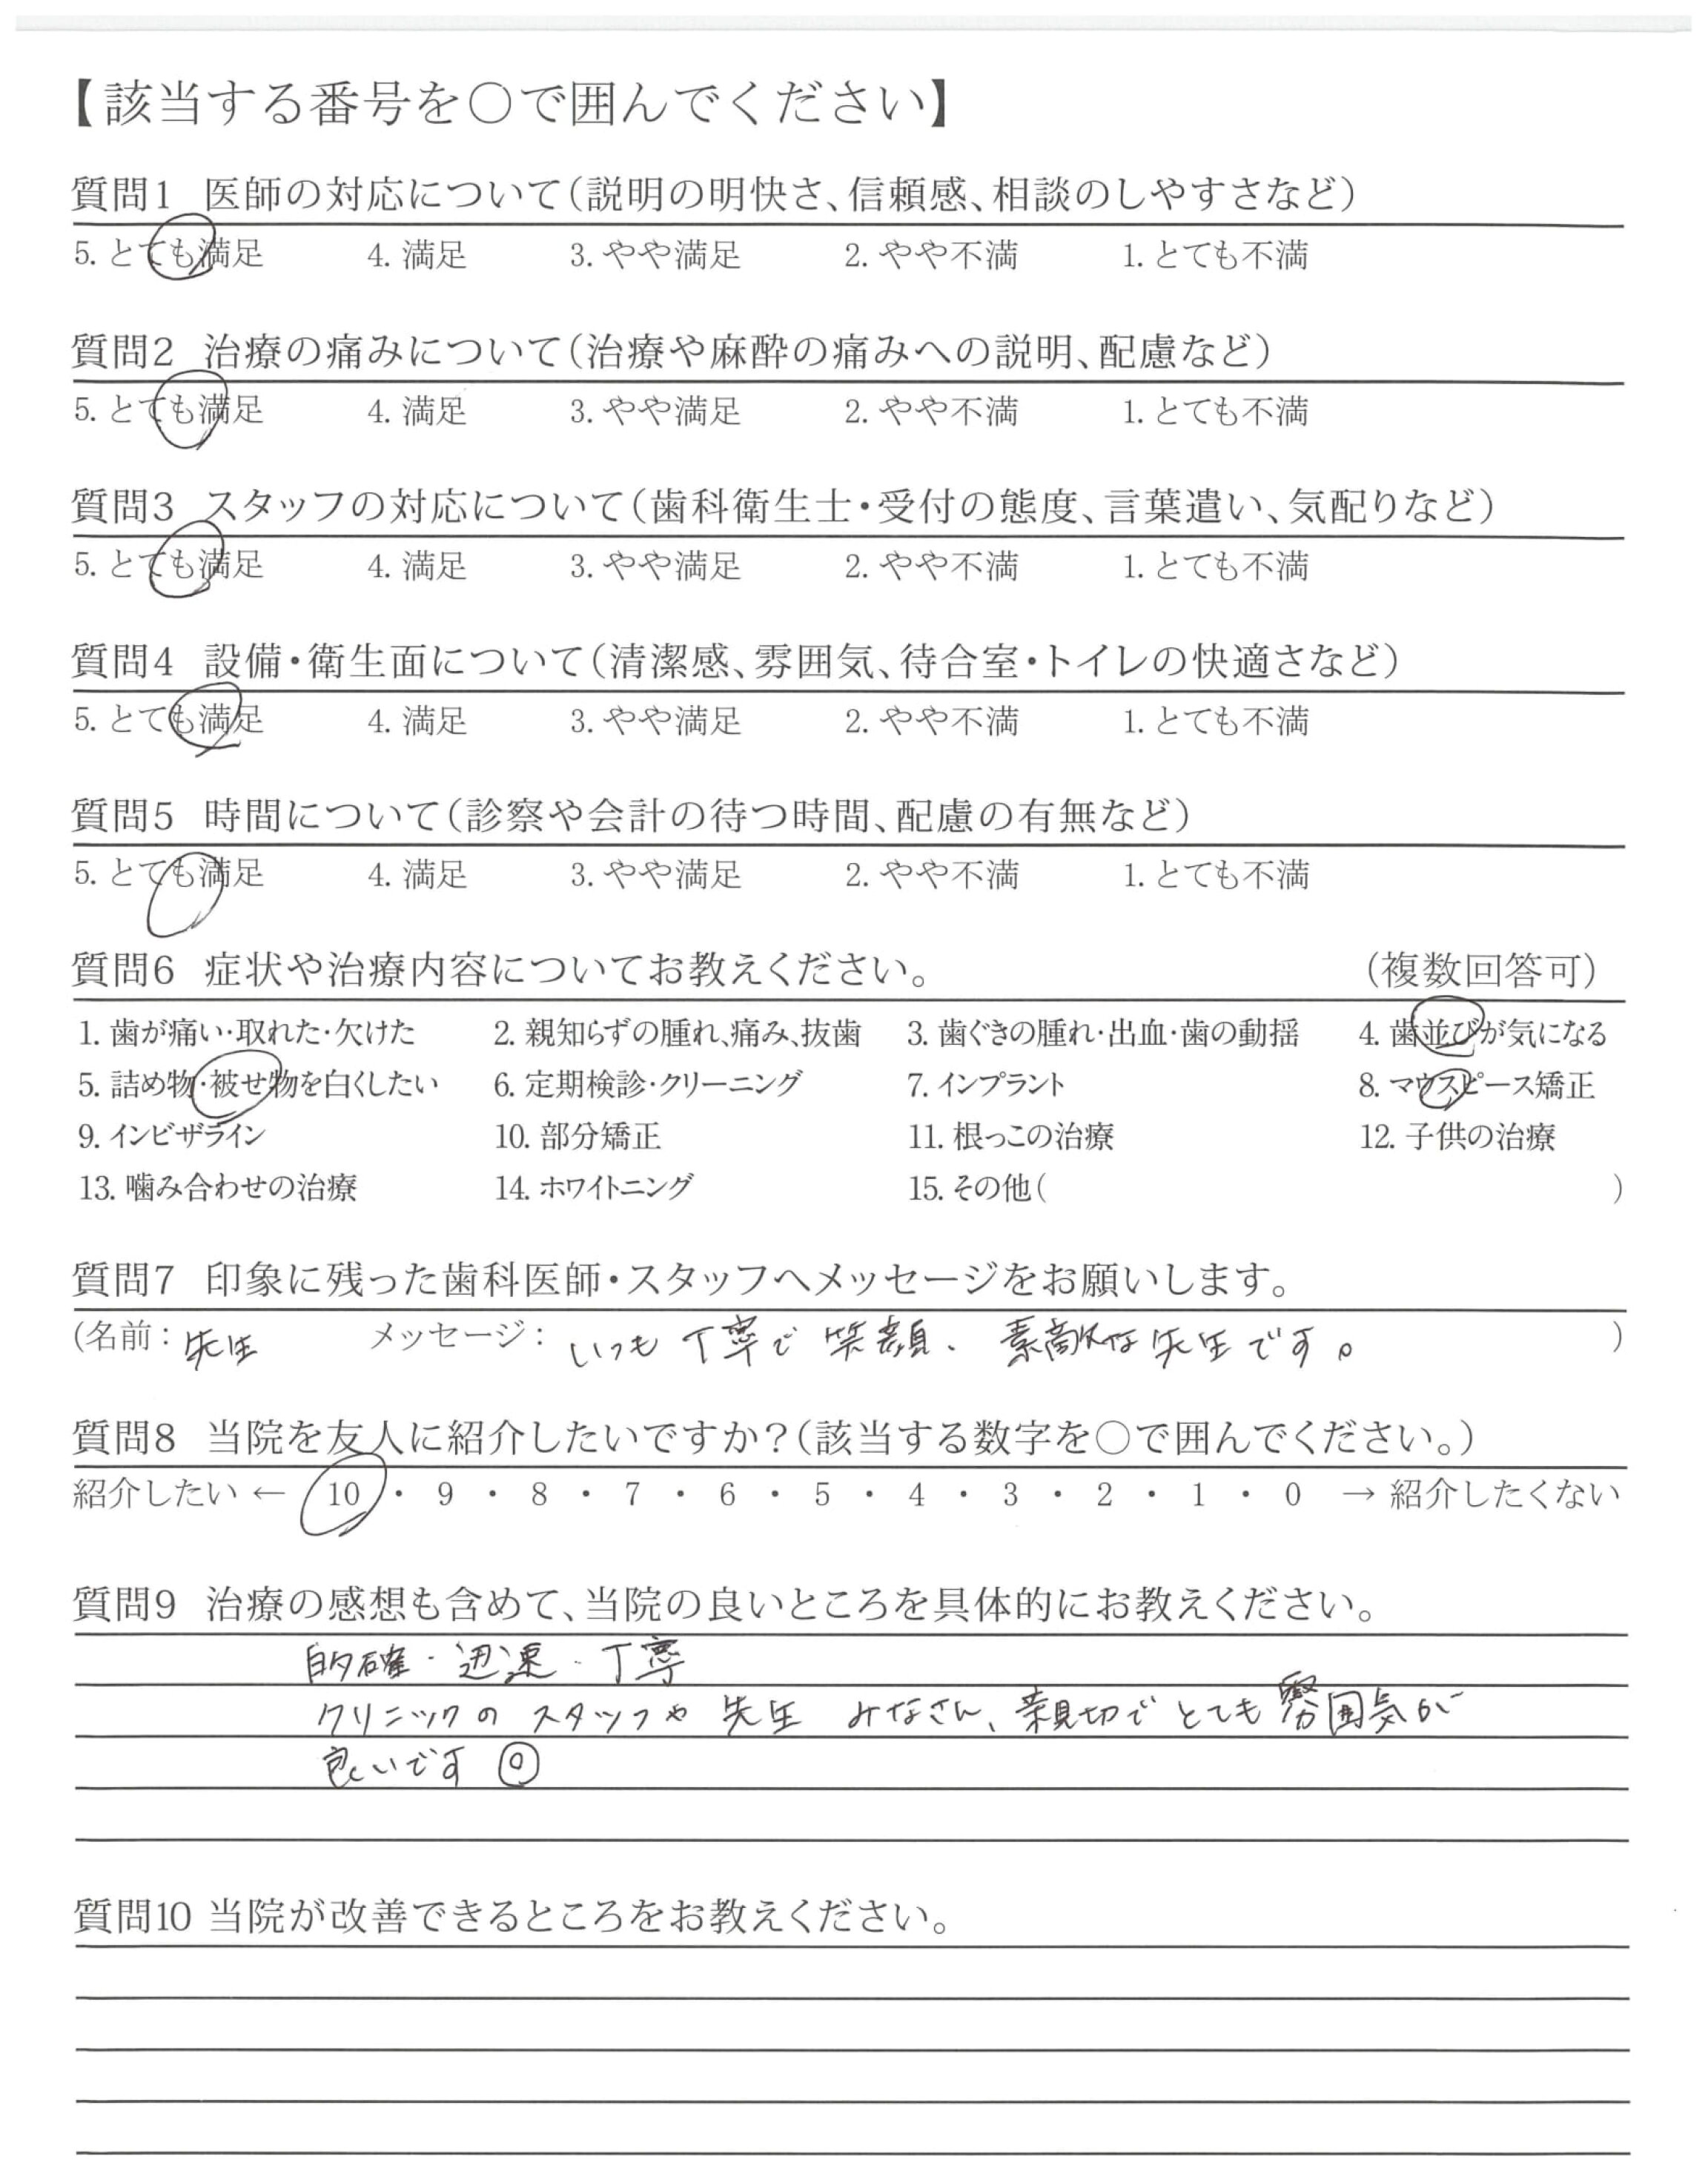 【該当する番号を○で囲んでください】
質問1 医師の対応について(説明の明快さ、信頼感、相談のしやすさなど)
5. とても満足 4. 満足 3. やや満足 2. やや不満 1. とても不満
質問2 治療の痛みについて(治療や麻酔の痛みへの説明、配慮など)
5. とても満足 4. 満足 3. やや満足 2. やや不満 1. とても不満
質問3 スタッフの対応について(歯科衛生士・受付の態度、言葉遣い、気配りなど)
5. とても満足 4. 満足 3. やや満足 2. やや不満 1. とても不満
質問4 設備・衛生面について(清潔感、雰囲気、待合室・トイレの快適さなど)
5. とても満足 4. 満足 3. やや満足 2. やや不満 1. とても不満
質問5 時間について(診察や会計の待つ時間、配慮の有無など)
5. とても満足 4. 満足 3. やや満足 2. やや不満 1. とても不満
質問6 症状や治療内容についてお教えください。 (複数回答可)
1. 歯が痛い・取れた・欠けた 2. 親知らずの腫れ、痛み、抜歯 3. 歯ぐきの腫れ・出血・歯の動揺 4. 歯並びが気になる
5. 詰め物・被せ物を白くしたい 6. 定期検診・クリーニング 7. インプラント 8. マウスピース矯正
9. インビザライン 10. 部分矯正 11. 根っこの治療 12. 子供の治療
13. 噛み合わせの治療 14. ホワイトニング 15. その他( )
質問7 印象に残った歯科医師・スタッフへメッセージをお願いします。
(名前: 先生 メッセージ: いつも丁寧で笑顔、素敵な先生です。 )
質問8 当院を友人に紹介したいですか?(該当する数字を○で囲んでください。)
紹介したい ← 10 ・ 9 ・ 8 ・ 7 ・ 6 ・ 5 ・ 4 ・ 3 ・ 2 ・ 1 ・ 0 → 紹介したくない
質問9 治療の感想も含めて、当院の良いところを具体的にお教えください。
的確・迅速・丁寧
クリニックのスタッフや先生みなさん、親切でとても雰囲気が
良いです◎
質問10 当院が改善できるところをお教えください。